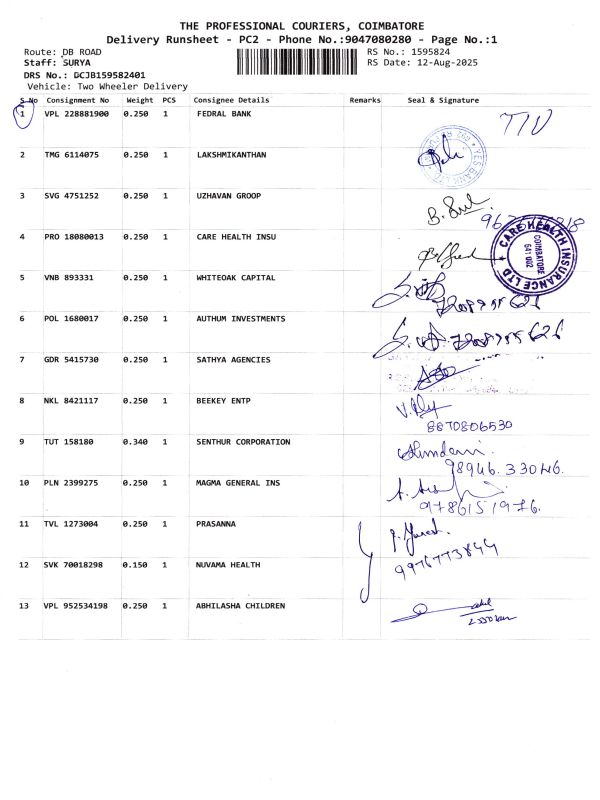 THE PROFESSIONAL COURIERS, COIMBATORE
Delivery Runsheet - PC2 - Phone No.:9047080280 - Page No.:1
Route: DB ROAD RS No.: 1595824
Staff: SURYA RS Date: 12-Aug-2025
DRS No.: DCJB159582401
Vehicle: Two Wheeler Delivery
S No Consignment No Weight PCS Consignee Details Remarks Seal & Signature
1 VPL 228881900 0.250 1 FEDRAL BANK
2 TMG 6114075 0.250 1 LAKSHMIKANTHAN
YES BANK LTD
3 SVG 4751252 0.250 1 UZHAVAN GROOP
4 PRO 18080013 0.250 1 CARE HEALTH INSU
CARE HEALTH INSURANCE LTD
COIMBATORE
641 002
5 VNB 893331 0.250 1 WHITEOAK CAPITAL
6 POL 1680017 0.250 1 AUTHUM INVESTMENTS
7 GDR 5415730 0.250 1 SATHYA AGENCIES
8 NKL 8421117 0.250 1 BEEKEY ENTP
8870806530
9 TUT 158180 0.340 1 SENTHUR CORPORATION
98946.33046.
10 PLN 2399275 0.250 1 MAGMA GENERAL INS
9786151976.
11 TVL 1273004 0.250 1 PRASANNA
9976773844
12 SVK 70018298 0.150 1 NUVAMA HEALTH
13 VPL 952534198 0.250 1 ABHILASHA CHILDREN